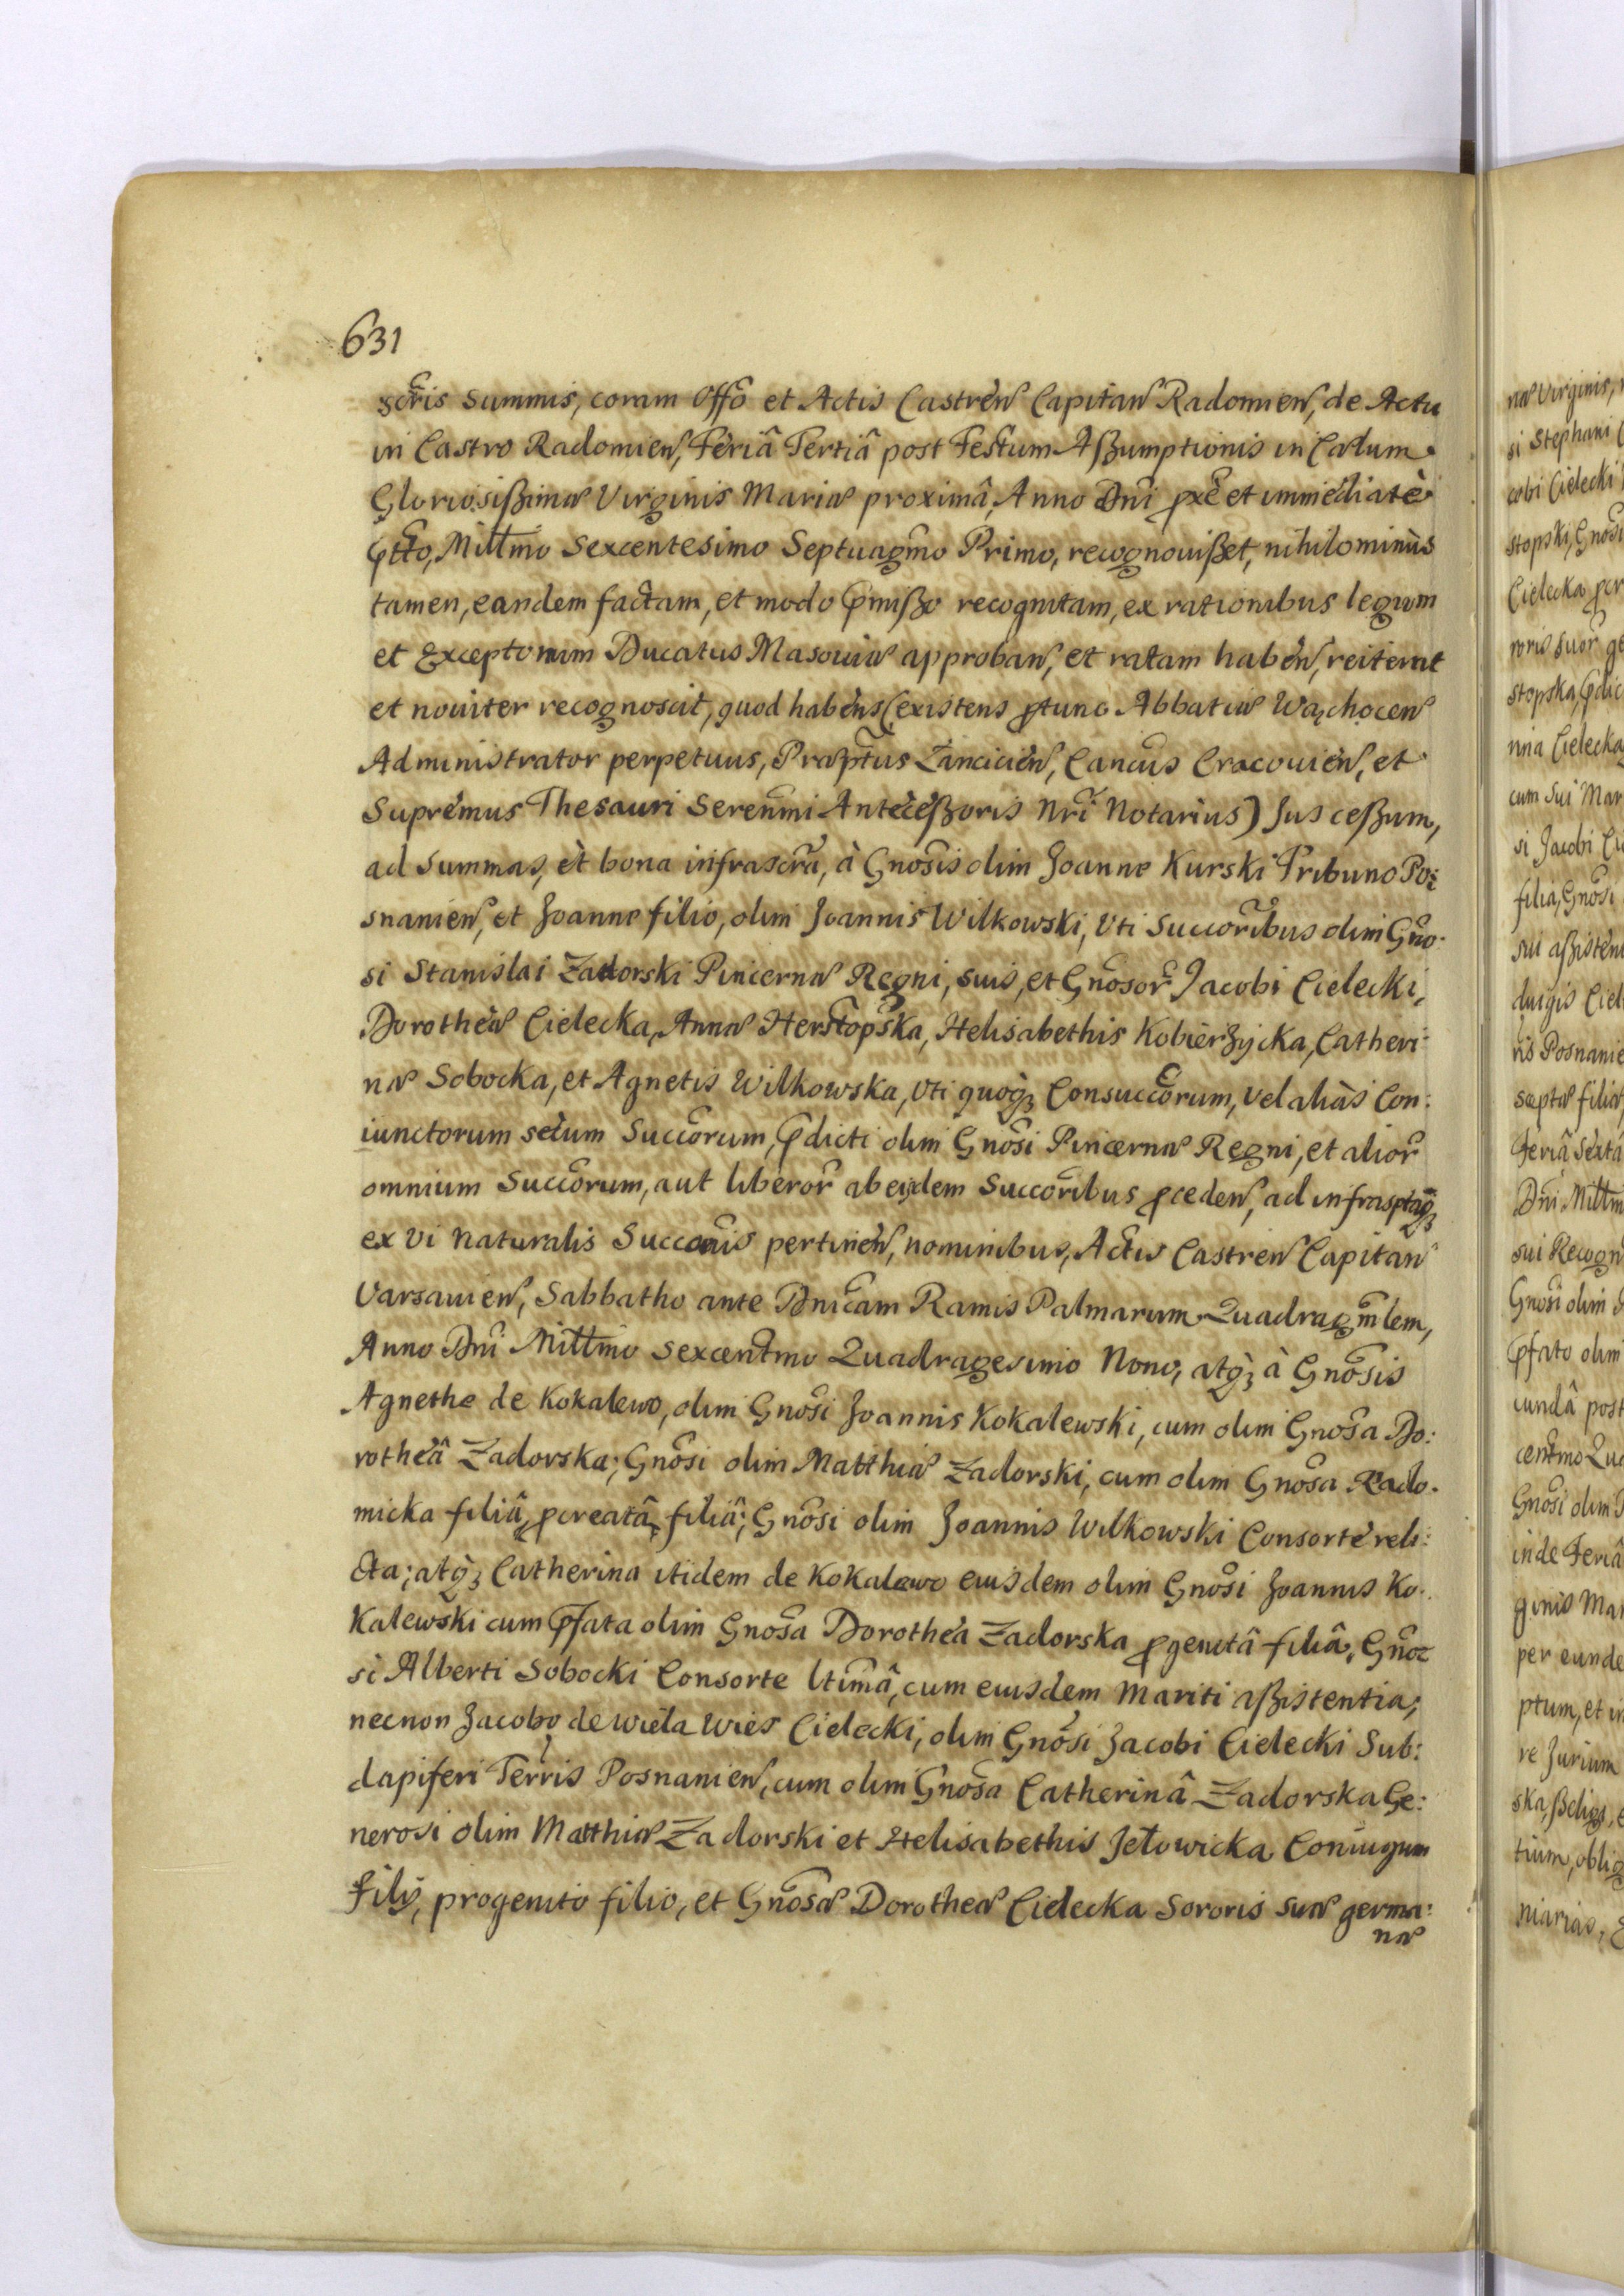 631
scris summis, coram Offo et Actis Castren Capitan Radomien, de Actu
in Castro Radomien, Feriâ Tertiâ post Festum Aßumptionis in Cælum
Gloriosißimæ Virginis Mariæ proximâ, Anno Dni pxe et immediatè
ptto, Millmo Sexcentesimo Septuagmo Primo, recognouißet, nihilominùs
tamen, eandem factam, et modo pmißo recognitam, ex rationibus legum
et Exceptonum Ducatus Masouiæ approban, et ratam haben, reiterat
et nouiter recognoscit, quod habens (existens ptunc Abbatiæ Wąchocen
Administrator perpetuus, Præptus Lancicien, Cancus Cracouien, et
Supremus Thesauri Serenmi Anteceßoris Nri Notarius) Jus ceßum,
ad Summas, et bona infrascra, à Gnosis olim Joanne Kurski Tribuno Po:
snanien, et Joanne filio, olim Joannis Wilkowski, Vti Succoribus olim Gno:
si Stanislai Zadorski Pincernæ Regni, suis, et Gnosor Jacobi Cielecki,
Dorotheæ Cielecka, Annæ Herstopska, Helisabethis Kobierzycka, Catheri:
næ Sobocka, et Agnetis Wilkowska, Vti quoq3 Consuccorum, Vel aliàs Con:
iunctorum secum Succorum, pdicti olim Gnosi Pincernæ Regni, et alior
omnium Succorum, aut liberor ab eijdem Succoribus pceden, ad infrasptaq3
ex Vi Naturalis Succonis pertinen, nominibus, Actis Castren Capitan
Varsauien, Sabbatho ante Dnicam Ramis Palmarum Quadragmlem,
Anno Dni Millmo Sexcentmo Quadragesimo Nono, atq3 à Gnosis
Agnethe de Kokalewo, olim Gnosi Joannis Kokalewski, cum olim Gnosa Do:
rotheâ Zadorska; Gnosi olim Matthiæ Zadorski, cum olim Gnosa Rado:
micka filiâ pcreatâ, filiâ; Gnosi olim Joannis Wilkowski Consorte reli:
cta; atq3 Catherina itidem de Kokalewo eiusdem olim Gnosi Joannis Ko:
Kalewski cum pfata olim Gnosa Dorothea Zadorska pgenitâ filiâ, Gno:
si Alberti Sobocki Consorte ltimâ, cum eiusdem Mariti aßistentia;
necnon Jacobo de Wiela Wies Cielecki, olim Gnosi Jacobi Cielecki Sub:
dapiferi Terris Posnanien, cum olim Gnosa Catherinâ Zadorska Ge:
nerosi olim Matthiæ Zadorski et Helisabethis Jełowicka Coniugum
filij, progenito filio, et Gnosæ Dorotheæ Cielecka Sororis suæ germa:
næ